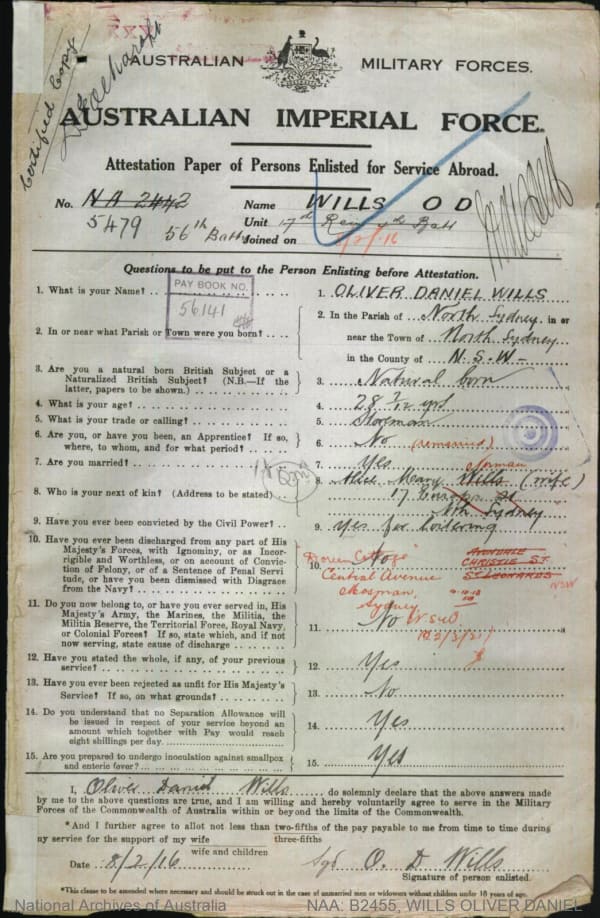 XXX
Certified Copy
AUSTRALIAN MILITARY FORCES.
AUSTRALIAN IMPERIAL FORCE.
Attestation Paper of Persons Enlisted for Service Abroad.
No. NA 2442 Name WILLS O D
5479 56th Battn Unit 17th Rein 4th Batt
Joined on 8/2/16
Questions to be put to the Person Enlisting before Attestation.
PAY BOOK NO.
56141
1. What is your Name? .. 1. OLIVER DANIEL WILLS
2. In or near what Parish or Town were you born? .. 2. In the Parish of North Sydney in or
near the Town of North Sydney
in the County of N.S.W-
3. Are you a natural born British Subject or a
Naturalized British Subject? (N.B.—If the
latter, papers to be shown.) 3. Natural born
4. What is your age? 4. 28 7/12 yrs
5. What is your trade or calling? 5. Storeman
6. Are you, or have you been, an Apprentice? If so,
where, to whom, and for what period? 6. No (remarried)
7. Are you married? 7. Yes
8. Who is your next of kin? (Address to be stated) 8. Alice Mary Wills (wife)
17 St
Nth Sydney
9. Have you ever been convicted by the Civil Power? 9. Yes for loitering
10. Have you ever been discharged from any part of His
Majesty's Forces, with Ignominy, or as Incor-
rigible and Worthless, or on account of Convic-
tion of Felony, or of a Sentence of Penal Servi-
tude, or have you been dismissed with Disgrace
from the Navy? 10. No
"Doreen Cottage"
Central Avenue
Mosman,
Sydney
AVONDALE
CHRISTIE ST.
ST LEONARDS
NSW
11. Do you now belong to, or have you ever served in, His
Majesty's Army, the Marines, the Militia, the
Militia Reserve, the Territorial Force, Royal Navy,
or Colonial Forces? If so, state which, and if not
now serving, state cause of discharge 11. No
12. Have you stated the whole, if any, of your previous
service? 12. Yes
13. Have you ever been rejected as unfit for His Majesty's
Service? If so, on what grounds? 13. No
14. Do you understand that no Separation Allowance will
be issued in respect of your service beyond an
amount which together with Pay would reach
eight shillings per day. 14. Yes
15. Are you prepared to undergo inoculation against smallpox
and enteric fever? 15. Yes
I, Oliver Daniel Wills do solemnly declare that the above answers made
by me to the above questions are true, and I am willing and hereby voluntarily agree to serve in the Military
Forces of the Commonwealth of Australia within or beyond the limits of the Commonwealth.
*And I further agree to allot not less than two-fifths of the pay payable to me from time to time during
three-fifths
my service for the support of my wife
wife and children
Date 8/2/16 Sgd O. D Wills
Signature of person enlisted.
*This clause to be amended where necessary and should be struck out in the case of unmarried men or widowers without children under 18 years of age.
National Archives of Australia NAA: B2455, WILLS OLIVER DANIEL